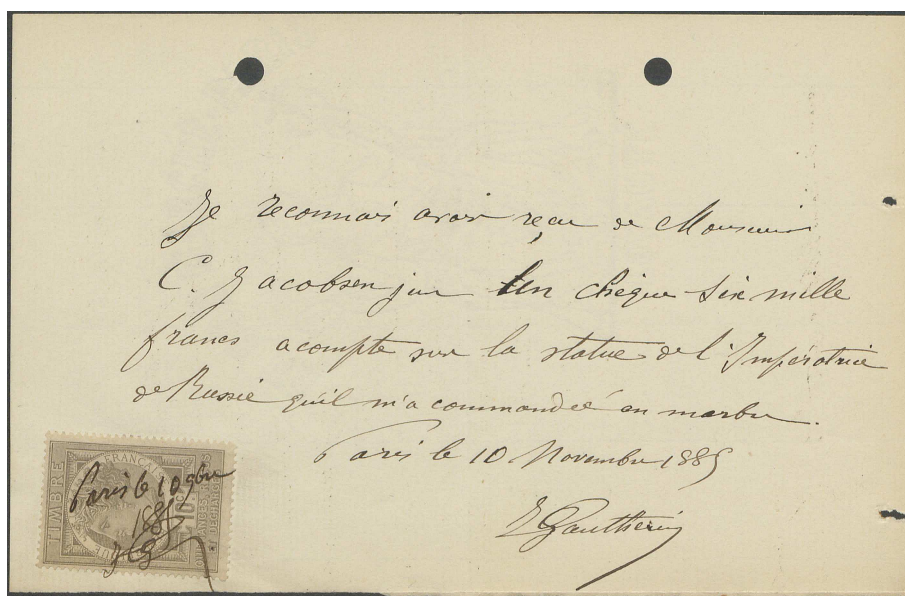 Je reconnais avoir reçu de Monsieur
C. Jacobsen jun Un chèque Six mille
francs acompte sur la statue de l'Impératrice
de Russie qu'il m'a commandée en marbre.
Paris le 10 Novembre 1885
J Gautherin
TIMBRE
FRANÇAISE
10c
Paris le 10 9bre
1885
JG